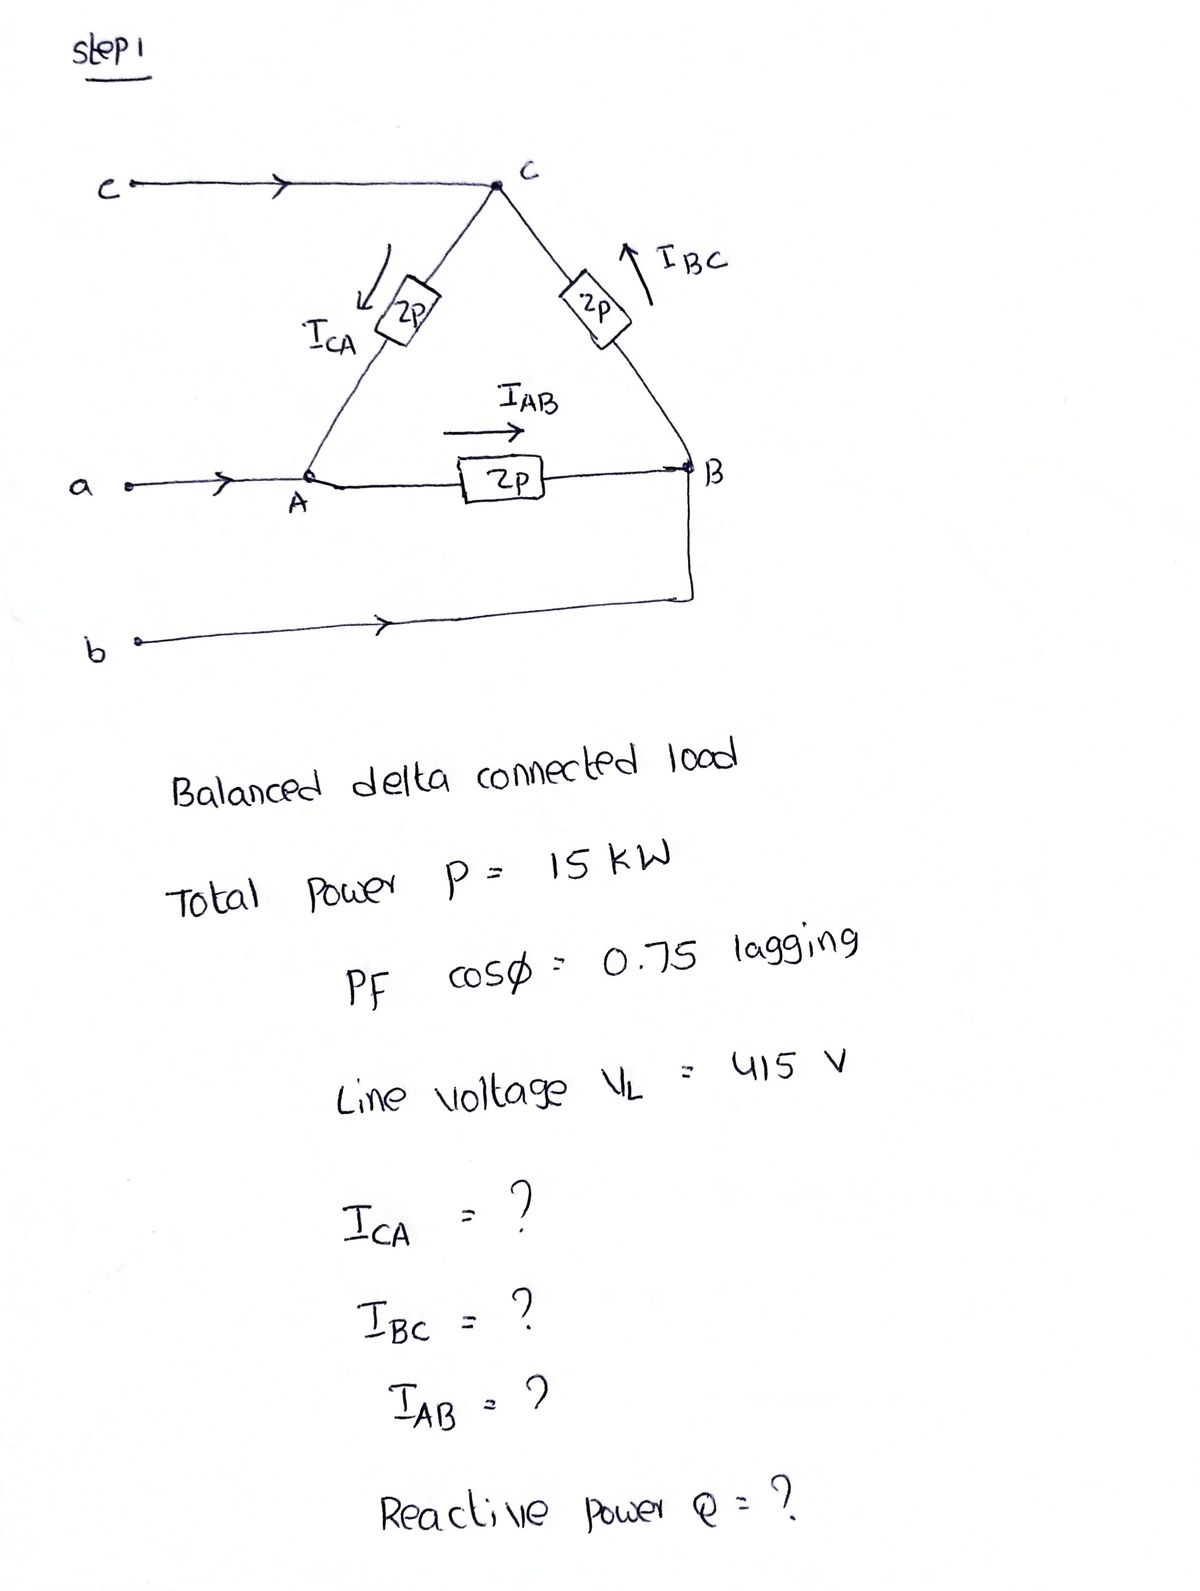 step 1
c
C
I BC
Zp
Zp
ICA
IAB
a
A
Zp
B
b
Balanced delta connected load
Total Power P = 15 kW
PF cosφ = 0.75 lagging
Line voltage VL = 415 V
ICA = ?
IBC = ?
IAB = ?
Reactive power Q = ?